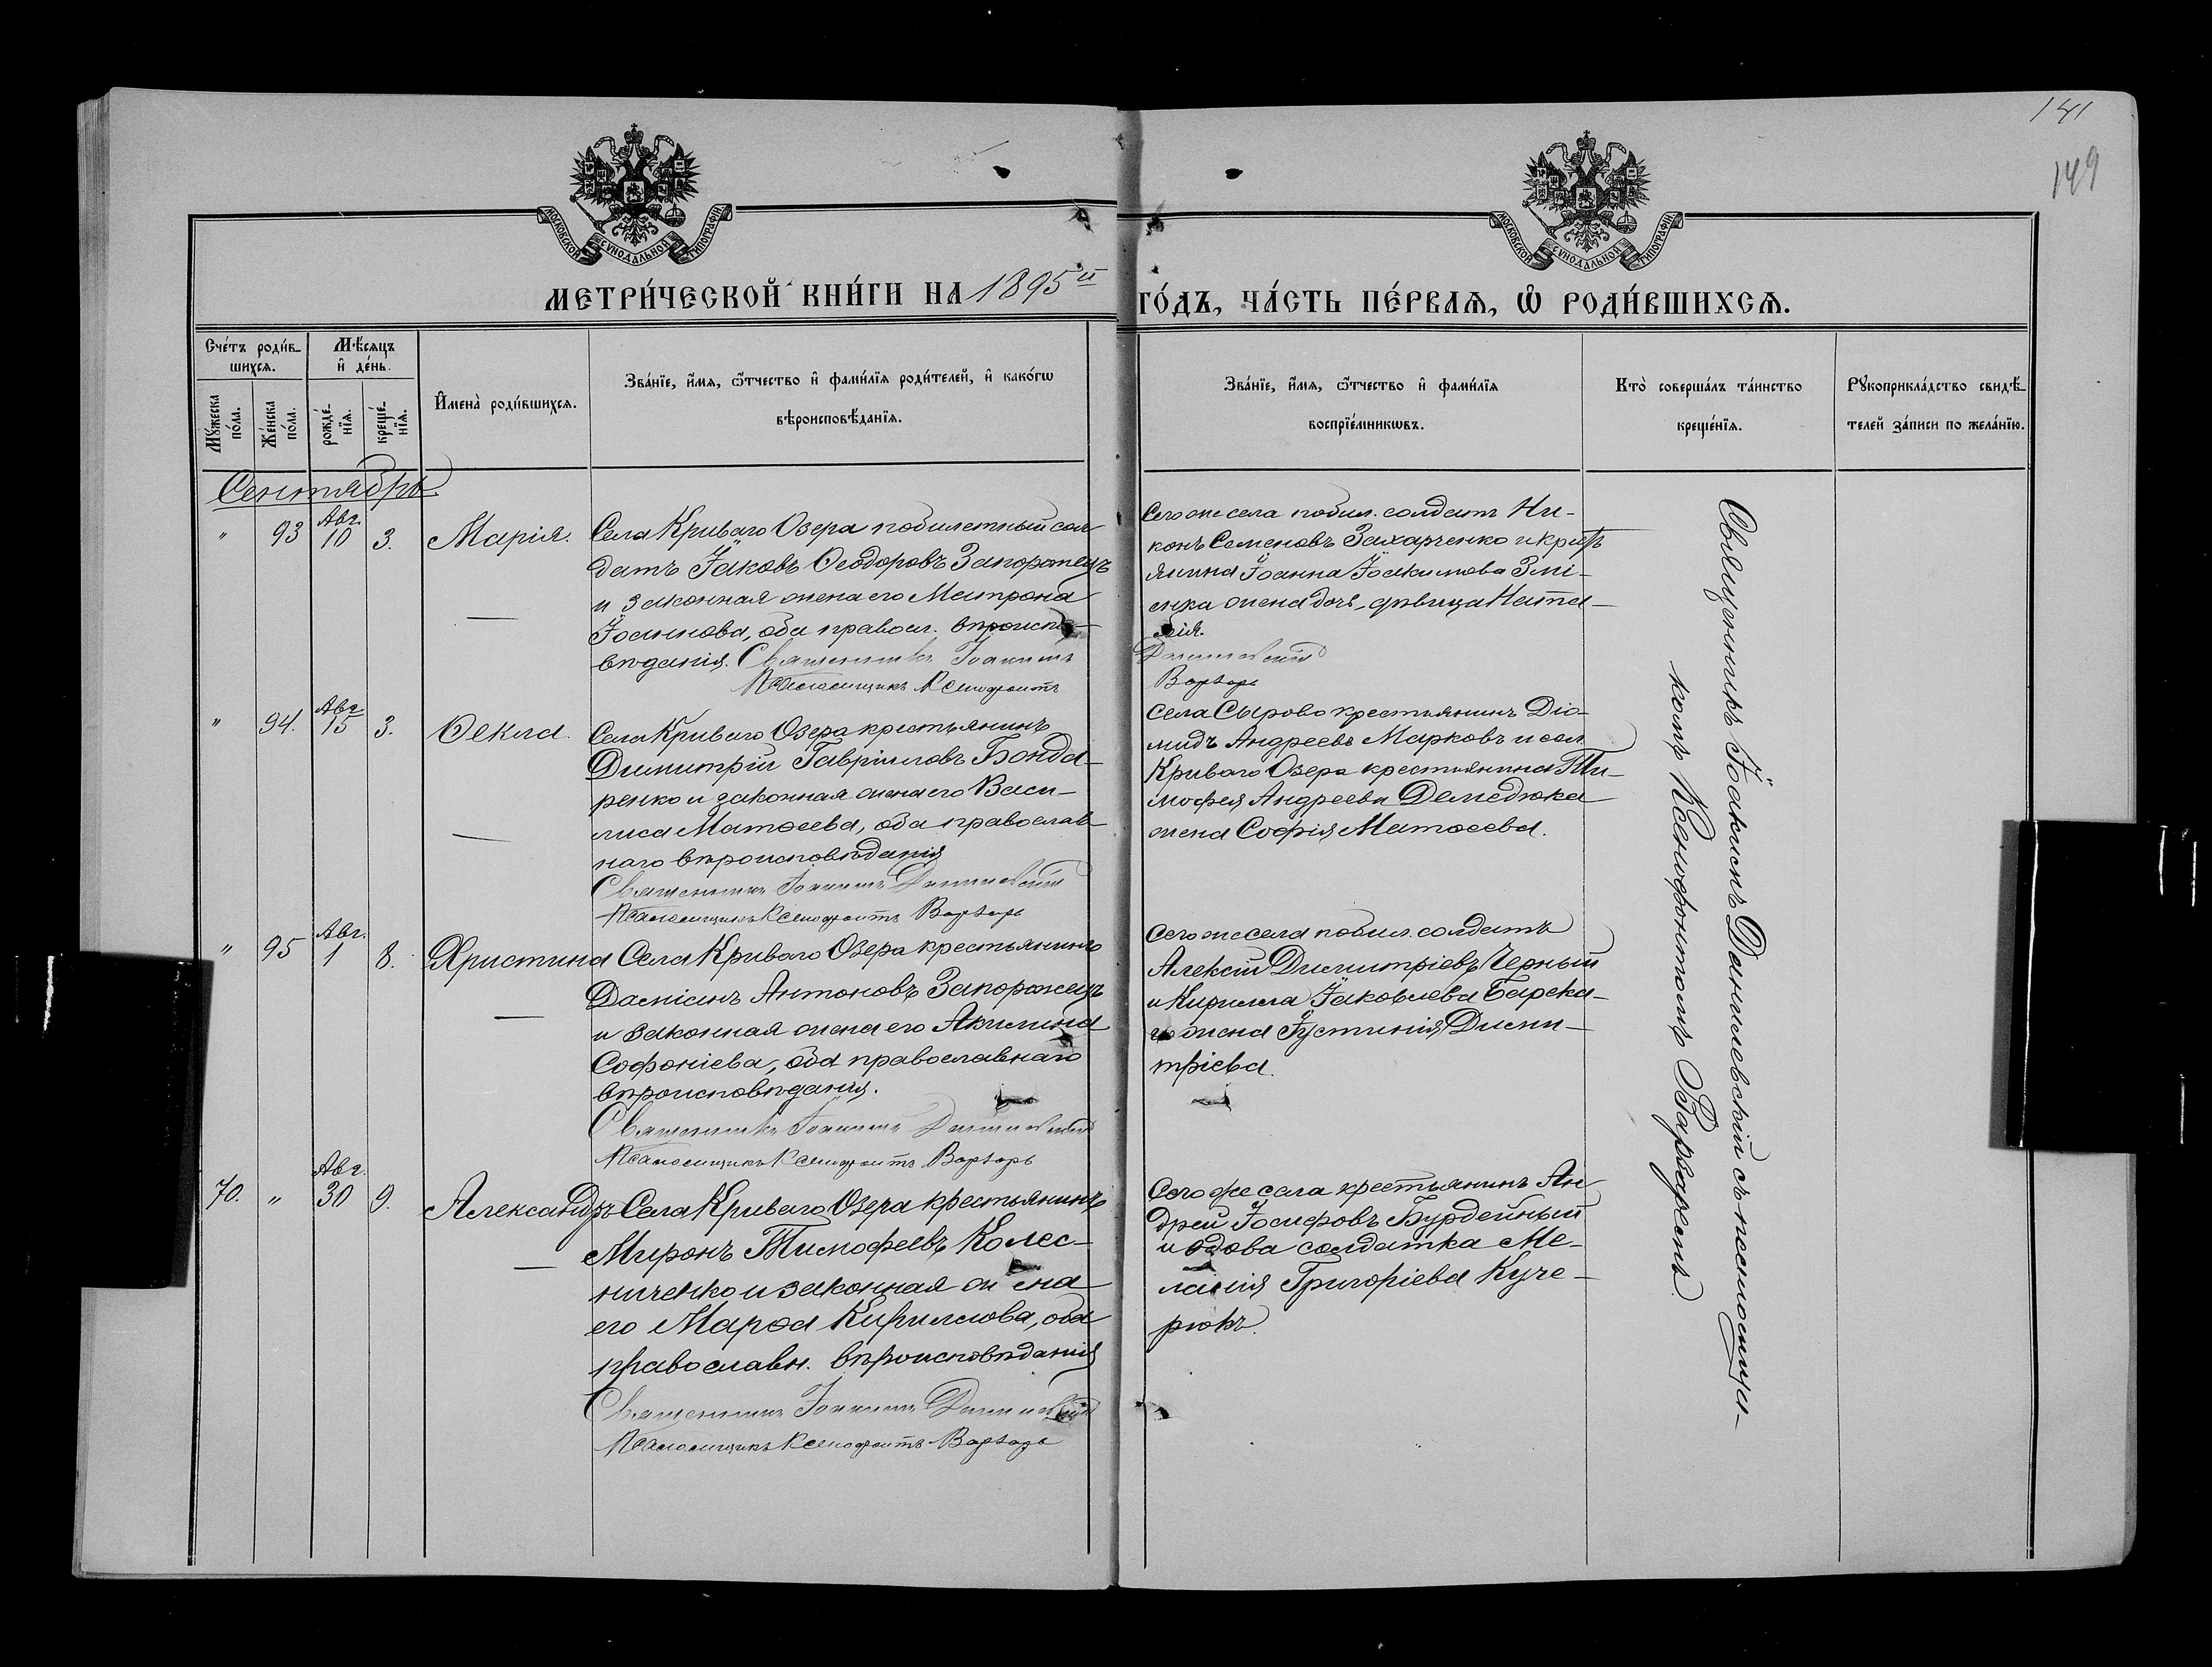 141
149
МОСКОВСКОЙ СѴНОДАЛЬНОЙ ТИПОГРАФІИ
МОСКОВСКОЙ СѴНОДАЛЬНОЙ ТИПОГРАФІИ
МЕТРИ́ЧЕСКОЙ КНИ́ГИ НА 1895й
ГО́ДЪ, ЧА́СТЬ ПЕ́РВАѦ, Ѡ҆ РОДИ́ВШИХСѦ.
Сче́тъ роди́в-
шихсѧ.
Мꙋ́жеска по́ла.
Же́нска по́ла.
Мѣ́сѧцъ
и҆ де́нь.
рожде́-нїѧ.
креще́-нїѧ.
И҆мена̀ роди́вшихсѧ.
Зва́нїе, и҆́мѧ, ѻ҆́тчество и҆ фами́лїѧ роди́телей, и҆ како́гѡ
вѣроисповѣ́данїѧ.
Зва́нїе, и҆́мѧ, ѻ҆́тчество и҆ фами́лїѧ
воспрїе́мникѡвъ.
Кто̀ соверша́лъ та́инство
креще́нїѧ.
Рꙋкоприкла́дство свидѣ́-
телей за́писи по жела́нїю.
Сентябрь
" 93 Авг. 10 3. Марія.
Села Криваго Озера побилетный сол
датъ Іаковъ Ѳеодоровъ Запорожецъ
и законная жена его Матрона
Іоаннова, оба правосл. вѣроиспо-
вѣданія. Священникъ Іоакимъ
Псаломщикъ Ксенофонтъ
Сего же села побил. солдатъ Ни-
конъ Семеновъ Захарченко и крест
янина Іоанна Іоакимова Змі-
енка жена дочь-дѣвица Ната-
лія.
Данилевскій
Варварь
" 94. Авг. 15 3. Ѳекла.
Села Криваго Озера крестьянинъ
Димитрій Гавріиловъ Бонда-
ренко и законная жена его Васи-
лиса Матѳеева, оба православ
наго вѣроисповѣданія
Священникъ Іоакимъ Данилевскій
Псаломщикъ Ксенофонтъ Варварь
Села Сырово крестьянинъ Діо-
мидъ Андреевъ Марковъ и сел.
Криваго Озера крестьянина Ти-
мофея Андреева Демедюка
жена Софія Матѳеева.
" 95 Авг. 1 8. Христина
Села Криваго Озера крестьянинъ
Даміанъ Антоновъ Запорожецъ
и законная жена его Акилина
Софоніева, оба православнаго
вѣроисповѣданія.
Священникъ Іоакимъ Данилевскій
Псаломщикъ Ксенофонтъ Варварь
Сего же села побил. солдатъ
Алексій Димитріевъ Черный
и Кирилла Іаковлева Барска-
го жена Іустинія Дими-
тріева.
70. " Авг. 30 9. Александръ
Села Криваго Озера крестьянинъ
Миронъ Тимофеевъ Колес-
ниченко и законная жена
его Марѳа Кириллова, оба
православн. вѣроисповѣданія
Священникъ Іоакимъ Данилевскій
Псаломщикъ Ксенофонтъ Варварь
Сего же села крестьянинъ Ан
дрей Іосифовъ Бурдейный
и вдова солдатка Ме-
ланія Григоріева Куче-
рюкъ.
Священникъ Іоакимъ Данилевскій съ псаломщи-
комъ Ксенофонтомъ Варваремъ.